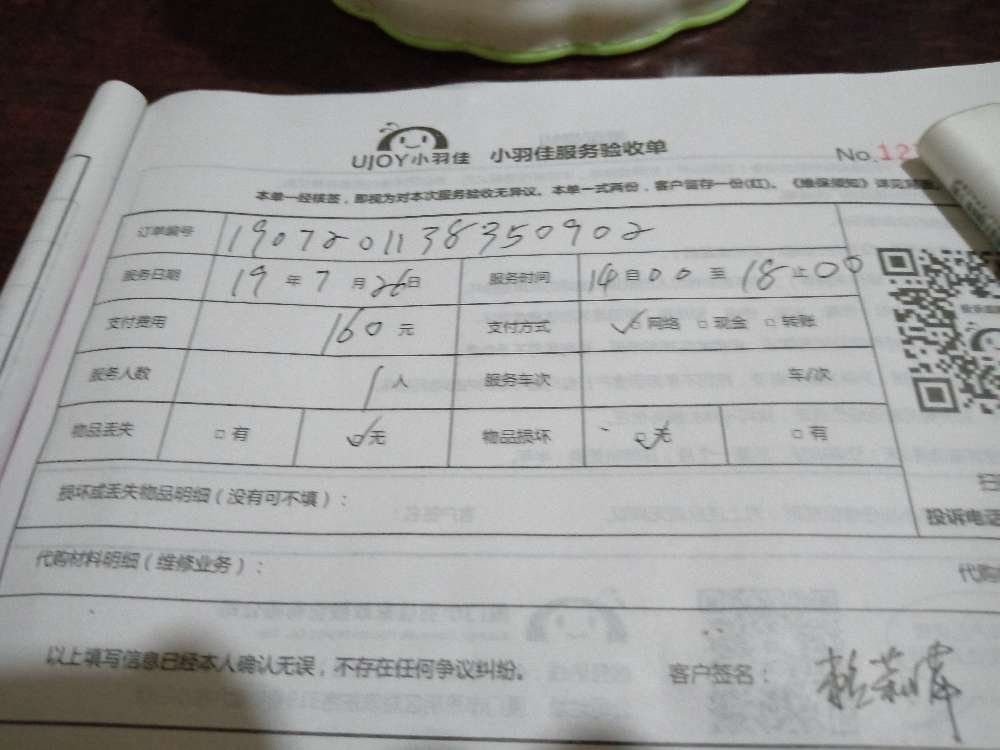 UJOY小羽佳 小羽佳服务验收单 No.12
本单一经核签，即视为对本次服务验收无异议。本单一式两份，客户留存一份(红)。《维保须知》详见背面
订单编号 1907201138350902
服务日期 19 年 7 月 26 日 服务时间 14 自 00 至 18 止 00
支付费用 160 元 支付方式 ☑网络 □现金 □转账
服务人数 1 人 服务车次 车/次
物品丢失 □有 ☑无 物品损坏 ☑无 □有
损坏或丢失物品明细（没有可不填）：
投诉电话
代购材料明细（维修业务）：
代购
以上填写信息已经本人确认无误，不存在任何争议纠纷。 客户签名：